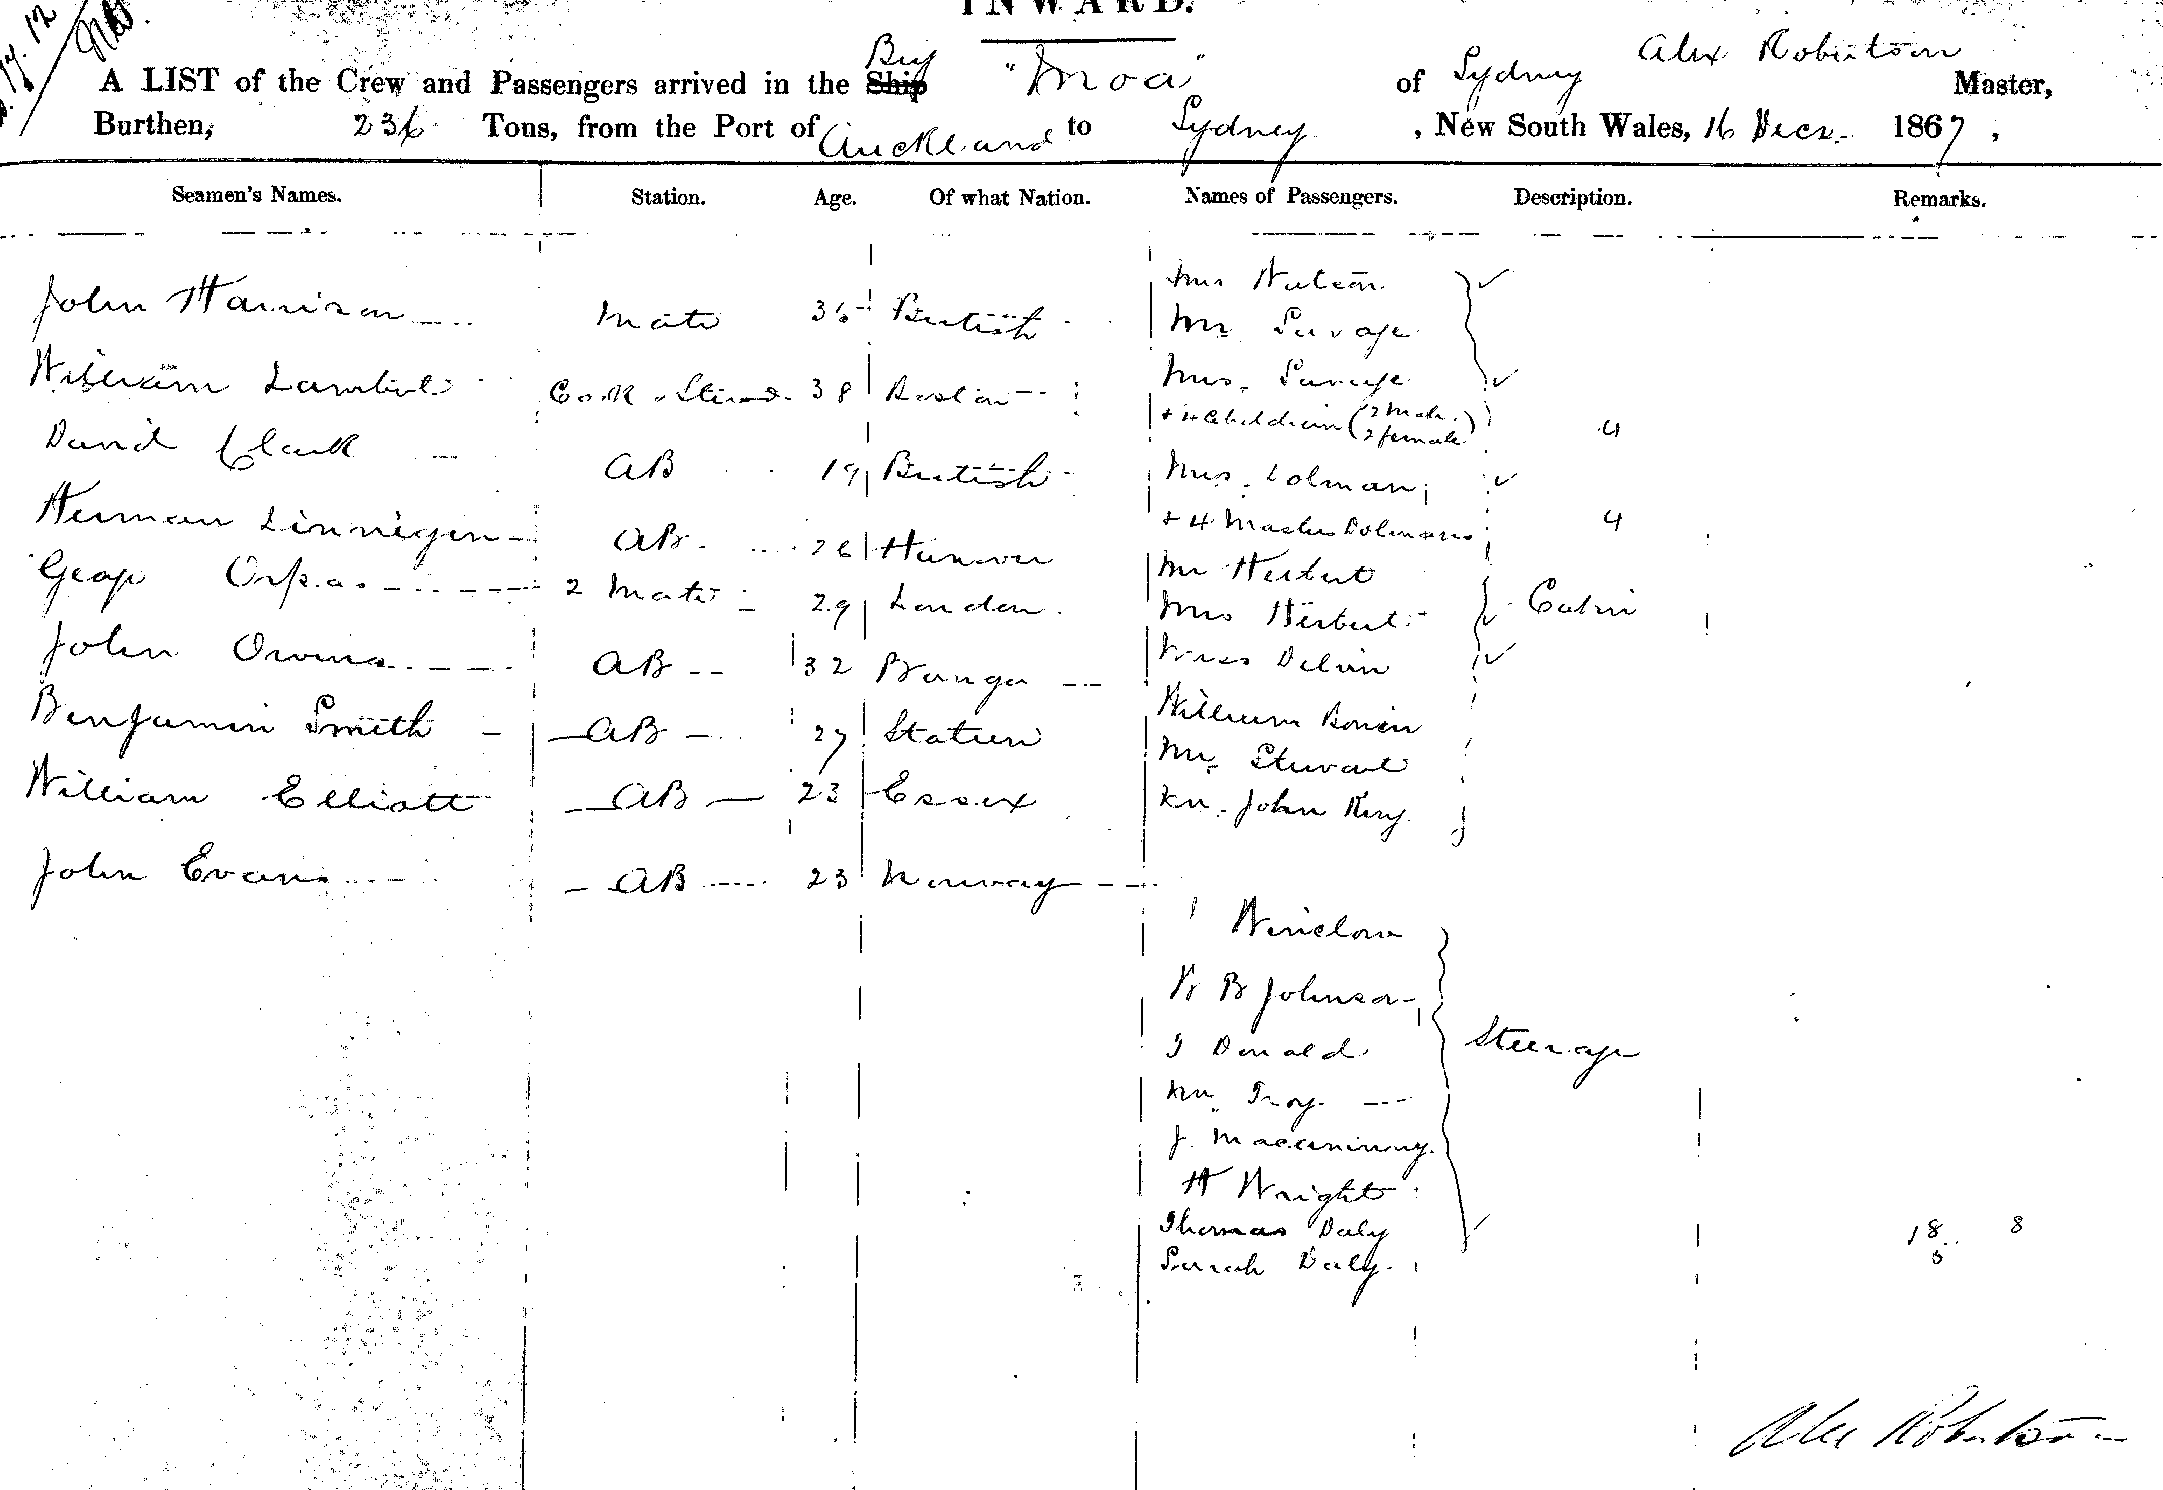 INWARD.
A LIST of the Crew and Passengers arrived in the Ship Brig "Moa" of Sydney Alex Robertson Master,
Burthen, 236 Tons, from the Port of Auckland to Sydney, New South Wales, 16 Decr. 1867,
Seamen's Names. Station. Age. Of what Nation. Names of Passengers. Description. Remarks.
John Harrison Mate 36 British
William Lambert Cook & Steward 38 Boston
David Clark AB 19 British
Herman AB 26 Hanover
2 Mate 29 London
John Owens AB 32 Bangor
Benjamin Smith AB 27
William Elliott AB 23 Essex
John Evans AB 23 Norway
Mrs
Mr Savage
Mrs. Savage
+ 4 Children (2 Male. 2 female) 4
Mrs.
+ 4 Masters 4
Mr Herbert
Mrs Herbert Cabin
Miss
William
Mr. Stewart
Mr. John King
Winslow
W B Johnson
J Donald Steerage
Mr. Troy
J.
H Wright
Thomas Daly 18 8
Sarah Daly. 5
Alex Robertson